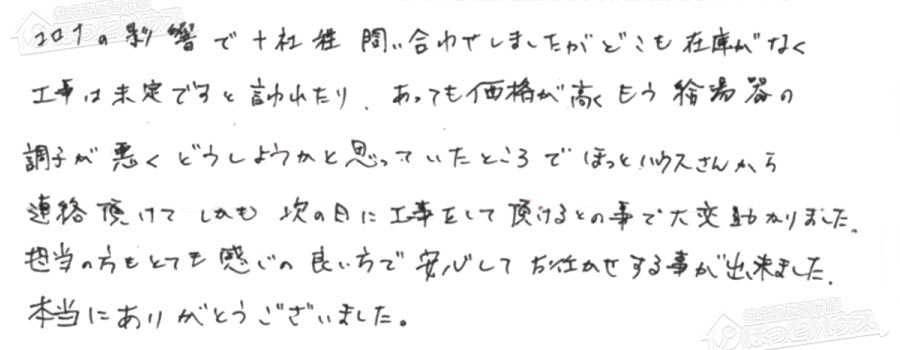 コロナの影響で十社程問い合わせしましたがどこも在庫がなく
工事は未定ですと言われたり、あっても価格が高くもう給湯器の
調子が悪くどうしようかと思っていたところでほっとハウスさんから
連絡頂けてしかも次の日に工事をして頂けるとの事で大変助かりました。
担当の方もとても感じの良い方で安心してお任せする事が出来ました。
本当にありがとうございました。
ほっとハウス